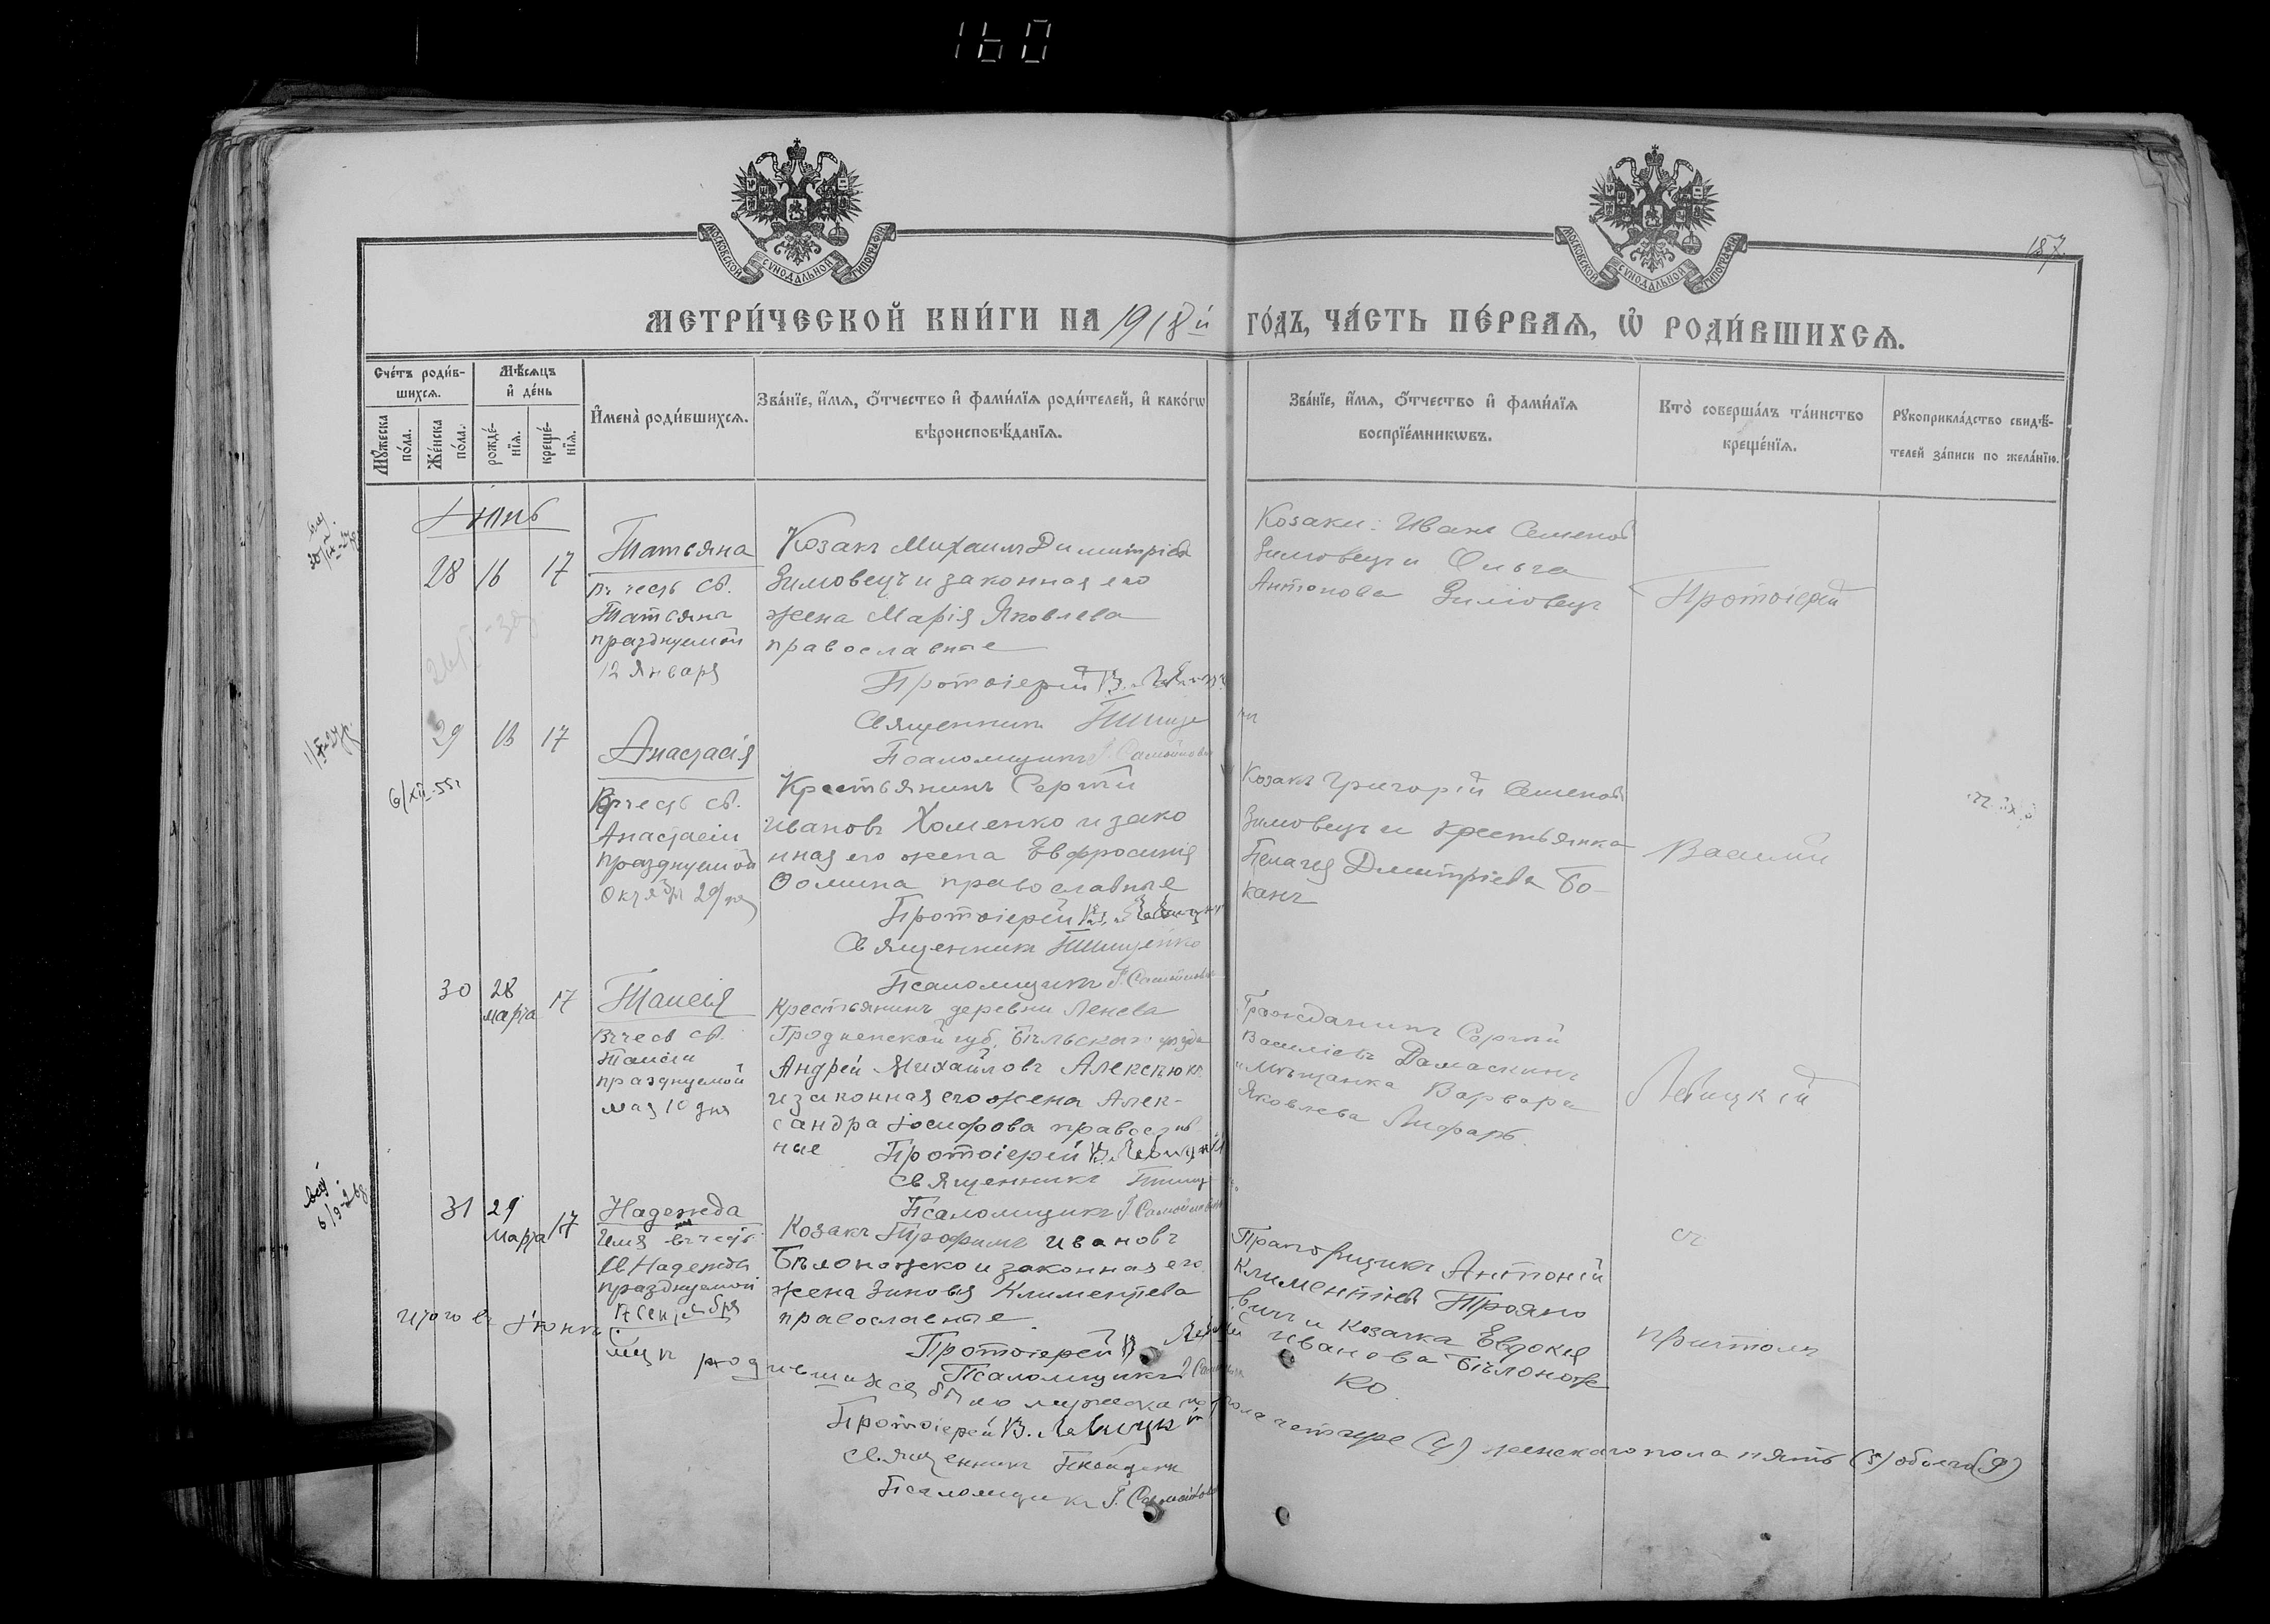 160
МОСКОВСКОЙ СѴНОДАЛЬНОЙ ТИПОГРАФІИ
МОСКОВСКОЙ СѴНОДАЛЬНОЙ ТИПОГРАФІИ
157.
МЕТРИ́ЧЕСКОЙ КНИ́ГИ НА 1918й ГО́ДЪ, ЧА́СТЬ ПЕ́РВАѦ, Ѡ҆ РОДИ́ВШИХСѦ.
Сче́тъ роди́в-
шихсѧ.
Мꙋ́жеска по́ла.
Же́нска по́ла.
Мѣ́сѧцъ
и҆ де́нь
рожде́-
нїѧ.
креще́-
нїѧ.
И҆мена̀ роди́вшихсѧ.
Зва́нїе, и҆́мѧ, ѻ҆́тчество и҆ фами́лїѧ роди́телей, и҆ како́гѡ
вѣроисповѣ́данїѧ.
Зва́нїе, и҆́мѧ, ѻ҆́тчество и҆ фами́лїѧ
воспрїе́мникѡвъ.
Кто̀ соверша́лъ та́инство
креще́нїѧ.
Рꙋкоприкла́дство свидѣ́-
телей за́писи по жела́нїю.
Іюнь
28 16 17
Татьяна
въ честь св.
Татьяны
празднуемой
12 Января
Козакъ Михаилъ Димитріевъ
Зимовецъ и законная его
жена Марія Яковлева
православные
Протоіерей В. Левицкій
Священникъ
Псаломщикъ Самойлов
Козаки: Иванъ Семеновъ
Зимовецъ и Ольга
Антонова Зимовецъ
Протоіерей
29 13 17
Анастасія
Въ честь св.
Анастасіи
празднуемой
Октября 29 дня
6/XII-55г
Крестьянинъ Сергѣй
Ивановъ Хоменко и зако
нная его жена Евфросинія
Ѳомина православные
Протоіерей В. Левицкій
Священникъ
Псаломщикъ Самойлов
Козакъ Григорій Семеновъ
Зимовецъ и крестьянка
Пелагея Димитріева Бо-
канъ
Василій
30 28 марта 17
Таисія
Въ честь св.
Таисіи
празднуемой
мая 10 дня
Крестьянинъ деревни Ленева
Гродненской губ. Бѣльскаго уѣзда
Андрей Михайловъ Алексѣюкъ
и законная его жена Алек-
сандра Іосифова православ
ные Протоіерей В. Левицкій
Священникъ
Псаломщикъ Самойлов
Гражданинъ Сергѣй
Василіевъ Дамаскинъ
и Мѣщанка Варвара
Яковлева Лифарь.
Левицкій
31 29 марта 17
Надежда
Имя въ честь
св Надежды
празднуемой
17 Сентября
Козакъ Трофимъ Ивановъ
Бѣлоножко и законная его
жена Зиновія Климентева
православные
Протоіерей В. Левицкій
Псаломщикъ
Прапорщикъ Антоній
Климентіевъ Трояно
вичъ и Козачка Евдокія
Иванова Бѣлонож
ко.
съ
причтомъ
Итого въ Іюнѣ м-цѣ родившихся было мужеска пола четыре (4) женскаго пола пять (5) обоего (9)
Протоіерей В. Левицкій
Священникъ
Псаломщикъ Самойлов